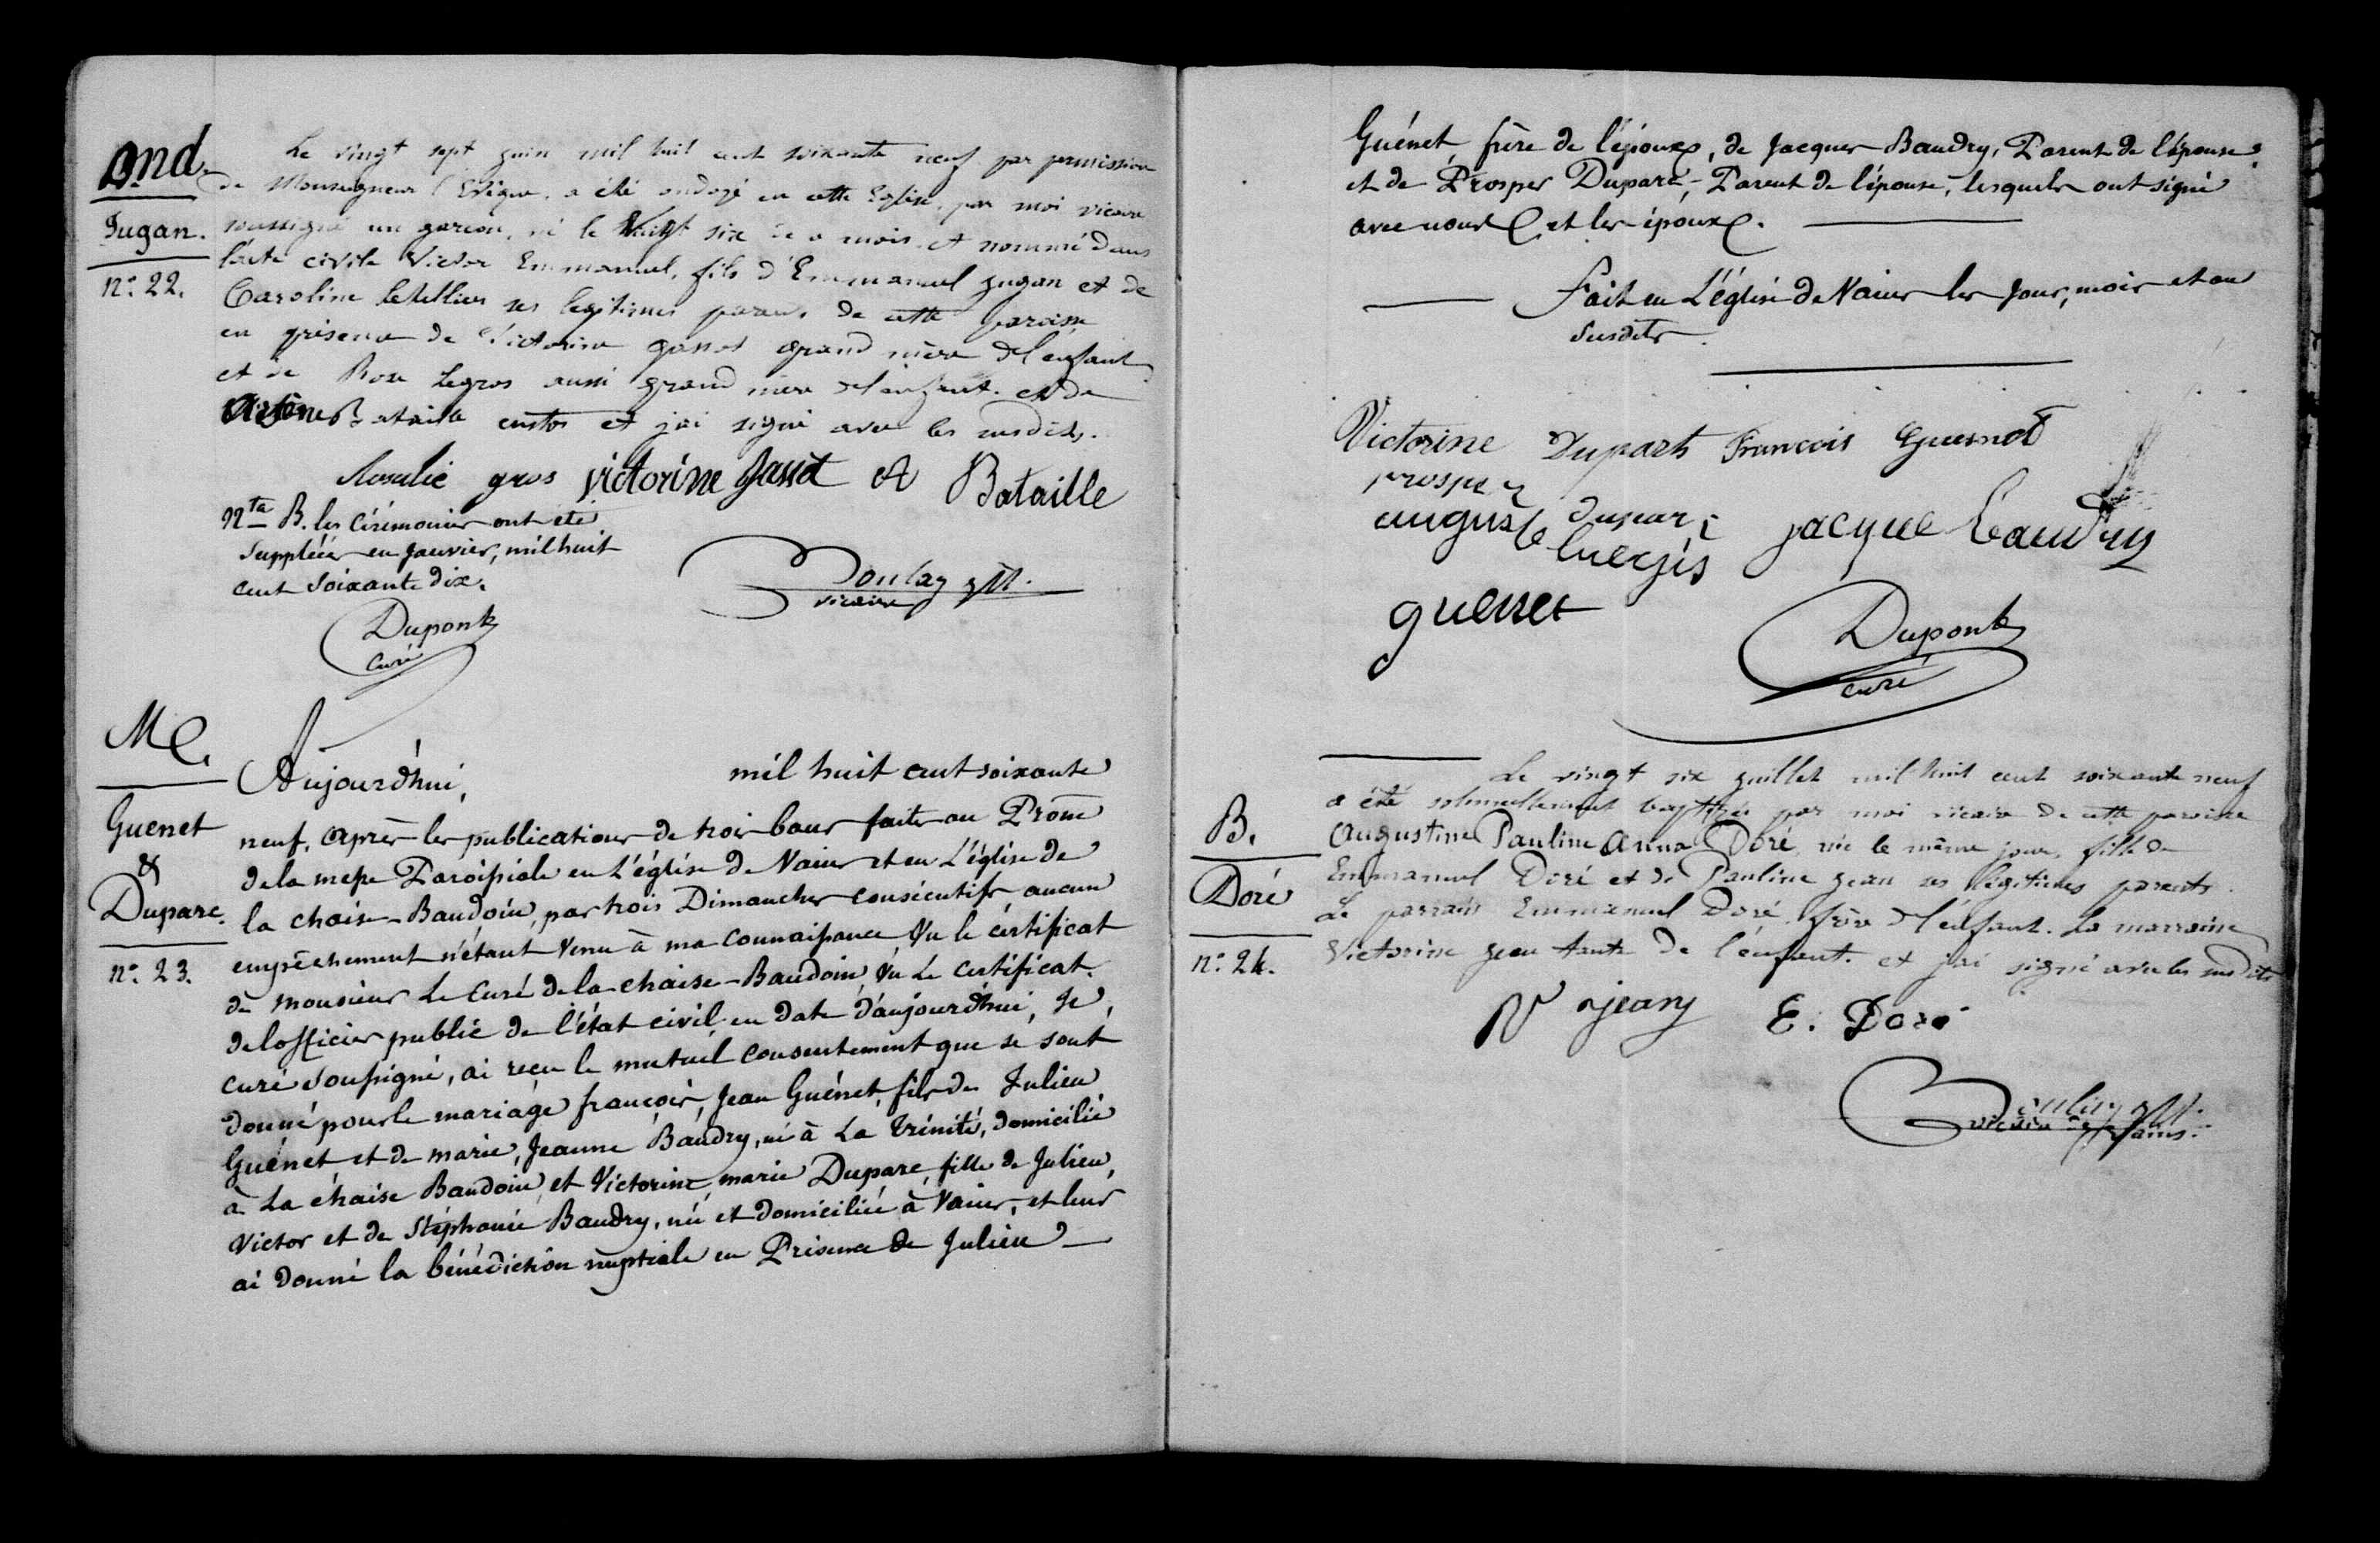 Ond.
Jugan.
n.° 22.
Le vingt sept juin mil huit cent soixante neuf par permission
de Monseigneur l'Evêque, a été ondoyé en cette Eglise, par moi vicaire
soussigné un garcon, né le Vingt six de ce mois et nommé dans
l'acte civile Victor Emmanuel, fils d'Emmanuel Jugan et de
Caroline letellier ses legitimes parens de cette paroisse
en présence de Victorine gassot grand mère de l'enfant
et de Rose Legros aussi grand mere de l'enfant. et de
Bataille custos et j'ai signé avec les susdits.
Rosalie gros victorine A Bataille
Nta B. les Cérémonies ont été
Suppléées en Janvier, mil huit
cent Soixante dix.
Dupont
Curé
vicaire
M.
Guenet
&
Duparc.
n.° 23.
Aujourd'hui, mil huit cent soixante
neuf, après les publications de trois bans faites au Prône
de la messe Paroissiale en L'église de Vains et en L'église de
la chaise-Baudoin, par trois Dimanches consécutifs, aucun
empêchement n'étant Venu à ma connaissance, Vu le certificat
de monsieur Le Curé de la chaise-Baudoin, Vu Le Certificat
de l'officier public de l'état civil en date d'aujourd'hui, Je,
curé soussigné, ai reçu le mutuel consentement que se sont
donné pour le mariage françois, Jean Guénet, fils de Julien
Guénet et de marie, Jeanne Baudry, né à La Trinité, domicilié
à La chaise Baudoin, et Victorine, marie Duparc, fille de Julien,
Victor et de Stéphanie Baudry, née et domiciliée à Vains, et leur
ai donné la bénédiction nuptiale en Présence de Julien
Guénet, frère de l'époux, de Jacques Baudry, Parent de l'épouse,
et de Prosper Duparc, Parent de l'épouse, lesquels ont signé
avec nous et les époux.
Fait en L'église de Vains les Jour, mois et an
Susdits.
Victorine Duparc Francois Guesnet
prosper duparc
auguste jacque baudry
guenet
Dupont
curé
B.
Doré
n.° 24.
Le vingt six juillet mil huit cent soixante neuf
a été solennellement baptisée par moi vicaire de cette paroisse
Augustine Pauline Anna Doré, née le même jour, fille de
Emmanuel Doré et de Pauline Jean ses légitimes parents.
Le parrain Emmanuel Doré frère de l'enfant. La marraine
Victorine Jean tante de l'enfant. et j'ai signé avec les susdits
V jean E. Doré
vicaire de Vains.